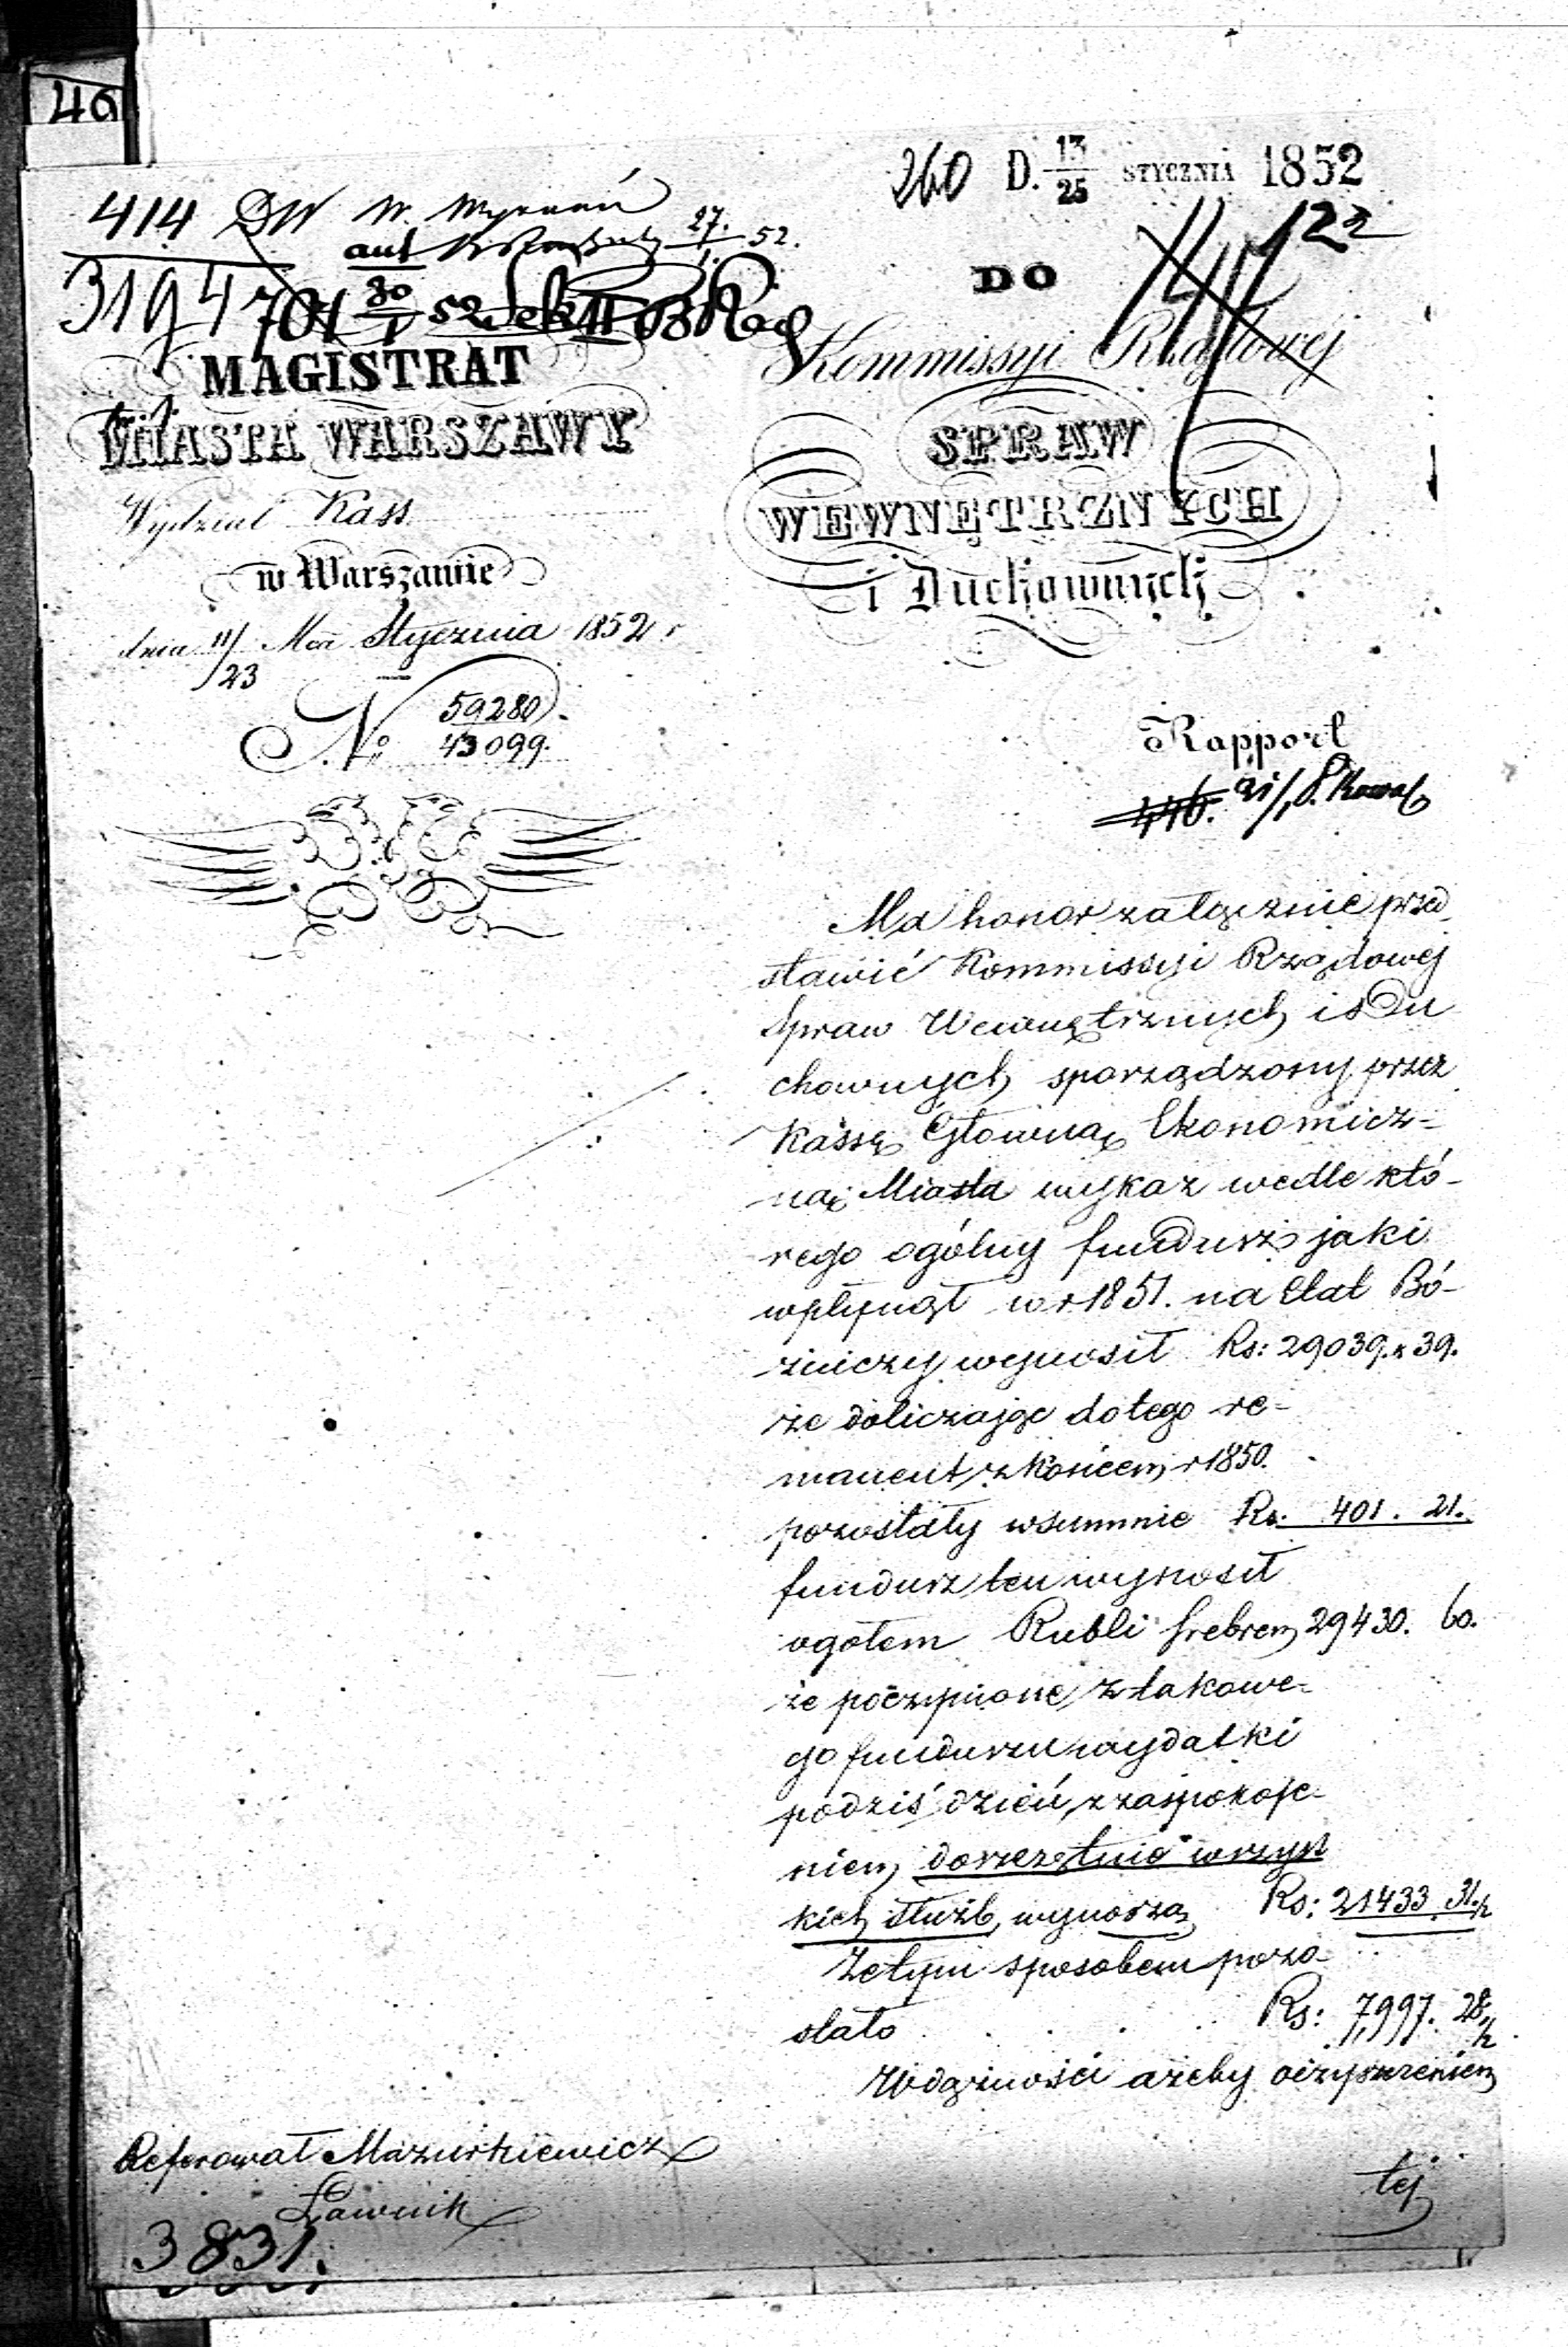 46
260 D. 13/25 STYCZNIA 1852
414 DW W.
27/1 52.
3194 701 30/1 52
MAGISTRAT
MIASTA WARSZAWY
Wydział Kass
w Warszawie
dnia 11/23 Mca Stycznia 1852 r
No 59280
43099.
DO
Kommissyi Rządowej
SPRAW
WEWNĘTRZNYCH
i Duchownych
Rapport
Ma honor załącznie przed
stawić Kommissyi Rządowej
Spraw Wewnętrznych i Du
chownych sporządzony przez
Kassę Główną Ekonomicz=
ną Miasta wykaz wedle któ-
rego ogólny fundusz jaki
wpłynął w r 1851. na Etat Bó-
żniczy wynosił Rs: 29039. k 39.
że doliczając do tego re=
manent z końcem r 1850.
pozostały w summie Rs. 401. 21.
fundusz ten wynosił
ogółem Rubli srebrem 29430. 60.
że poczynione z takowe=
go funduszu wydatki
po dziś dzień z zaspokoje-
niem doszczętnie wszyst
kich służb, wynoszą Rs: 21433 31 1/2
Ze tym sposobem pozo-
stało . . . . Rs: 7,997. 28 1/2
W dążności ażeby oczyszczeniem
tej
Referował Mazurkiewicz
Ławnik
3831.